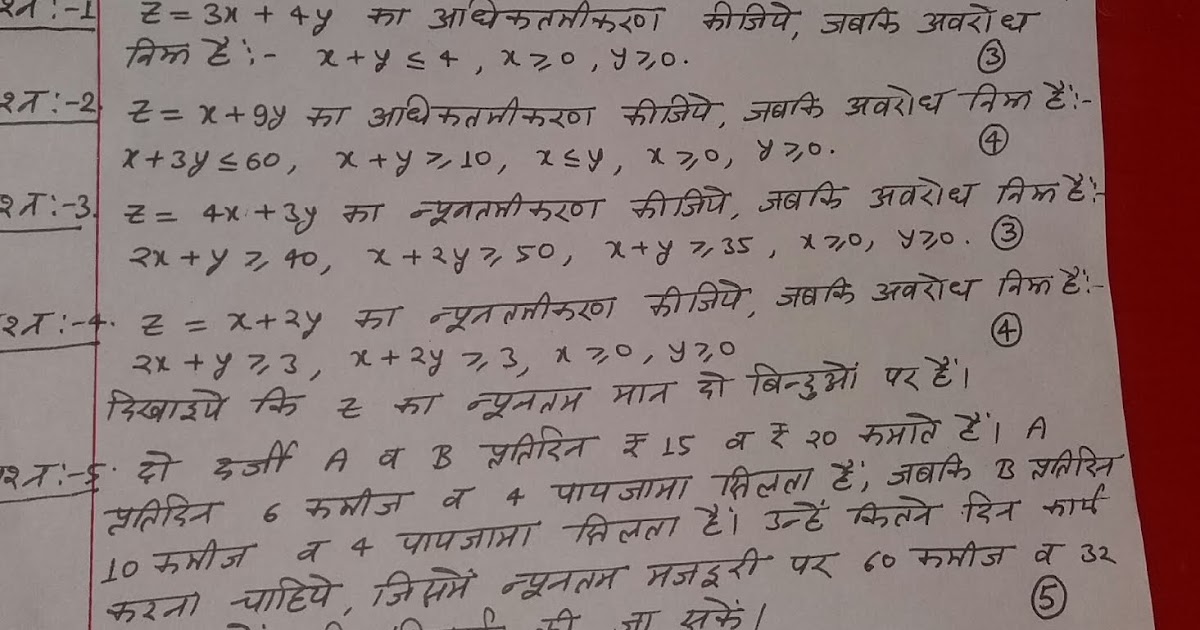 प्रश्न:-1 z = 3x + 4y का अधिकतमीकरण कीजिये, जबकि अवरोध
निम्न हैं:- x + y ≤ 4, x ≥ 0, y ≥ 0. ③
प्रश्न:-2. z = x + 9y का अधिकतमीकरण कीजिये, जबकि अवरोध निम्न हैं:-
x + 3y ≤ 60, x + y ≥ 10, x ≤ y, x ≥ 0, y ≥ 0. ④
प्रश्न:-3. z = 4x + 3y का न्यूनतमीकरण कीजिये, जबकि अवरोध निम्न हैं:-
2x + y ≥ 40, x + 2y ≥ 50, x + y ≥ 35, x ≥ 0, y ≥ 0. ③
प्रश्न:-4. z = x + 2y का न्यूनतमीकरण कीजिये, जबकि अवरोध निम्न हैं:-
2x + y ≥ 3, x + 2y ≥ 3, x ≥ 0, y ≥ 0 ④
दिखाइये कि z का न्यूनतम मान दो बिन्दुओं पर है।
प्रश्न:-5. दो दर्जी A व B प्रतिदिन ₹ 15 व ₹ 20 कमाते हैं। A
प्रतिदिन 6 कमीज व 4 पायजामा सिलता है, जबकि B प्रतिदिन
10 कमीज व 4 पायजामा सिलता है। उन्हें कितने दिन कार्य
करना चाहिये, जिसमें न्यूनतम मजदूरी पर 60 कमीज व 32
की जा सकें। ⑤